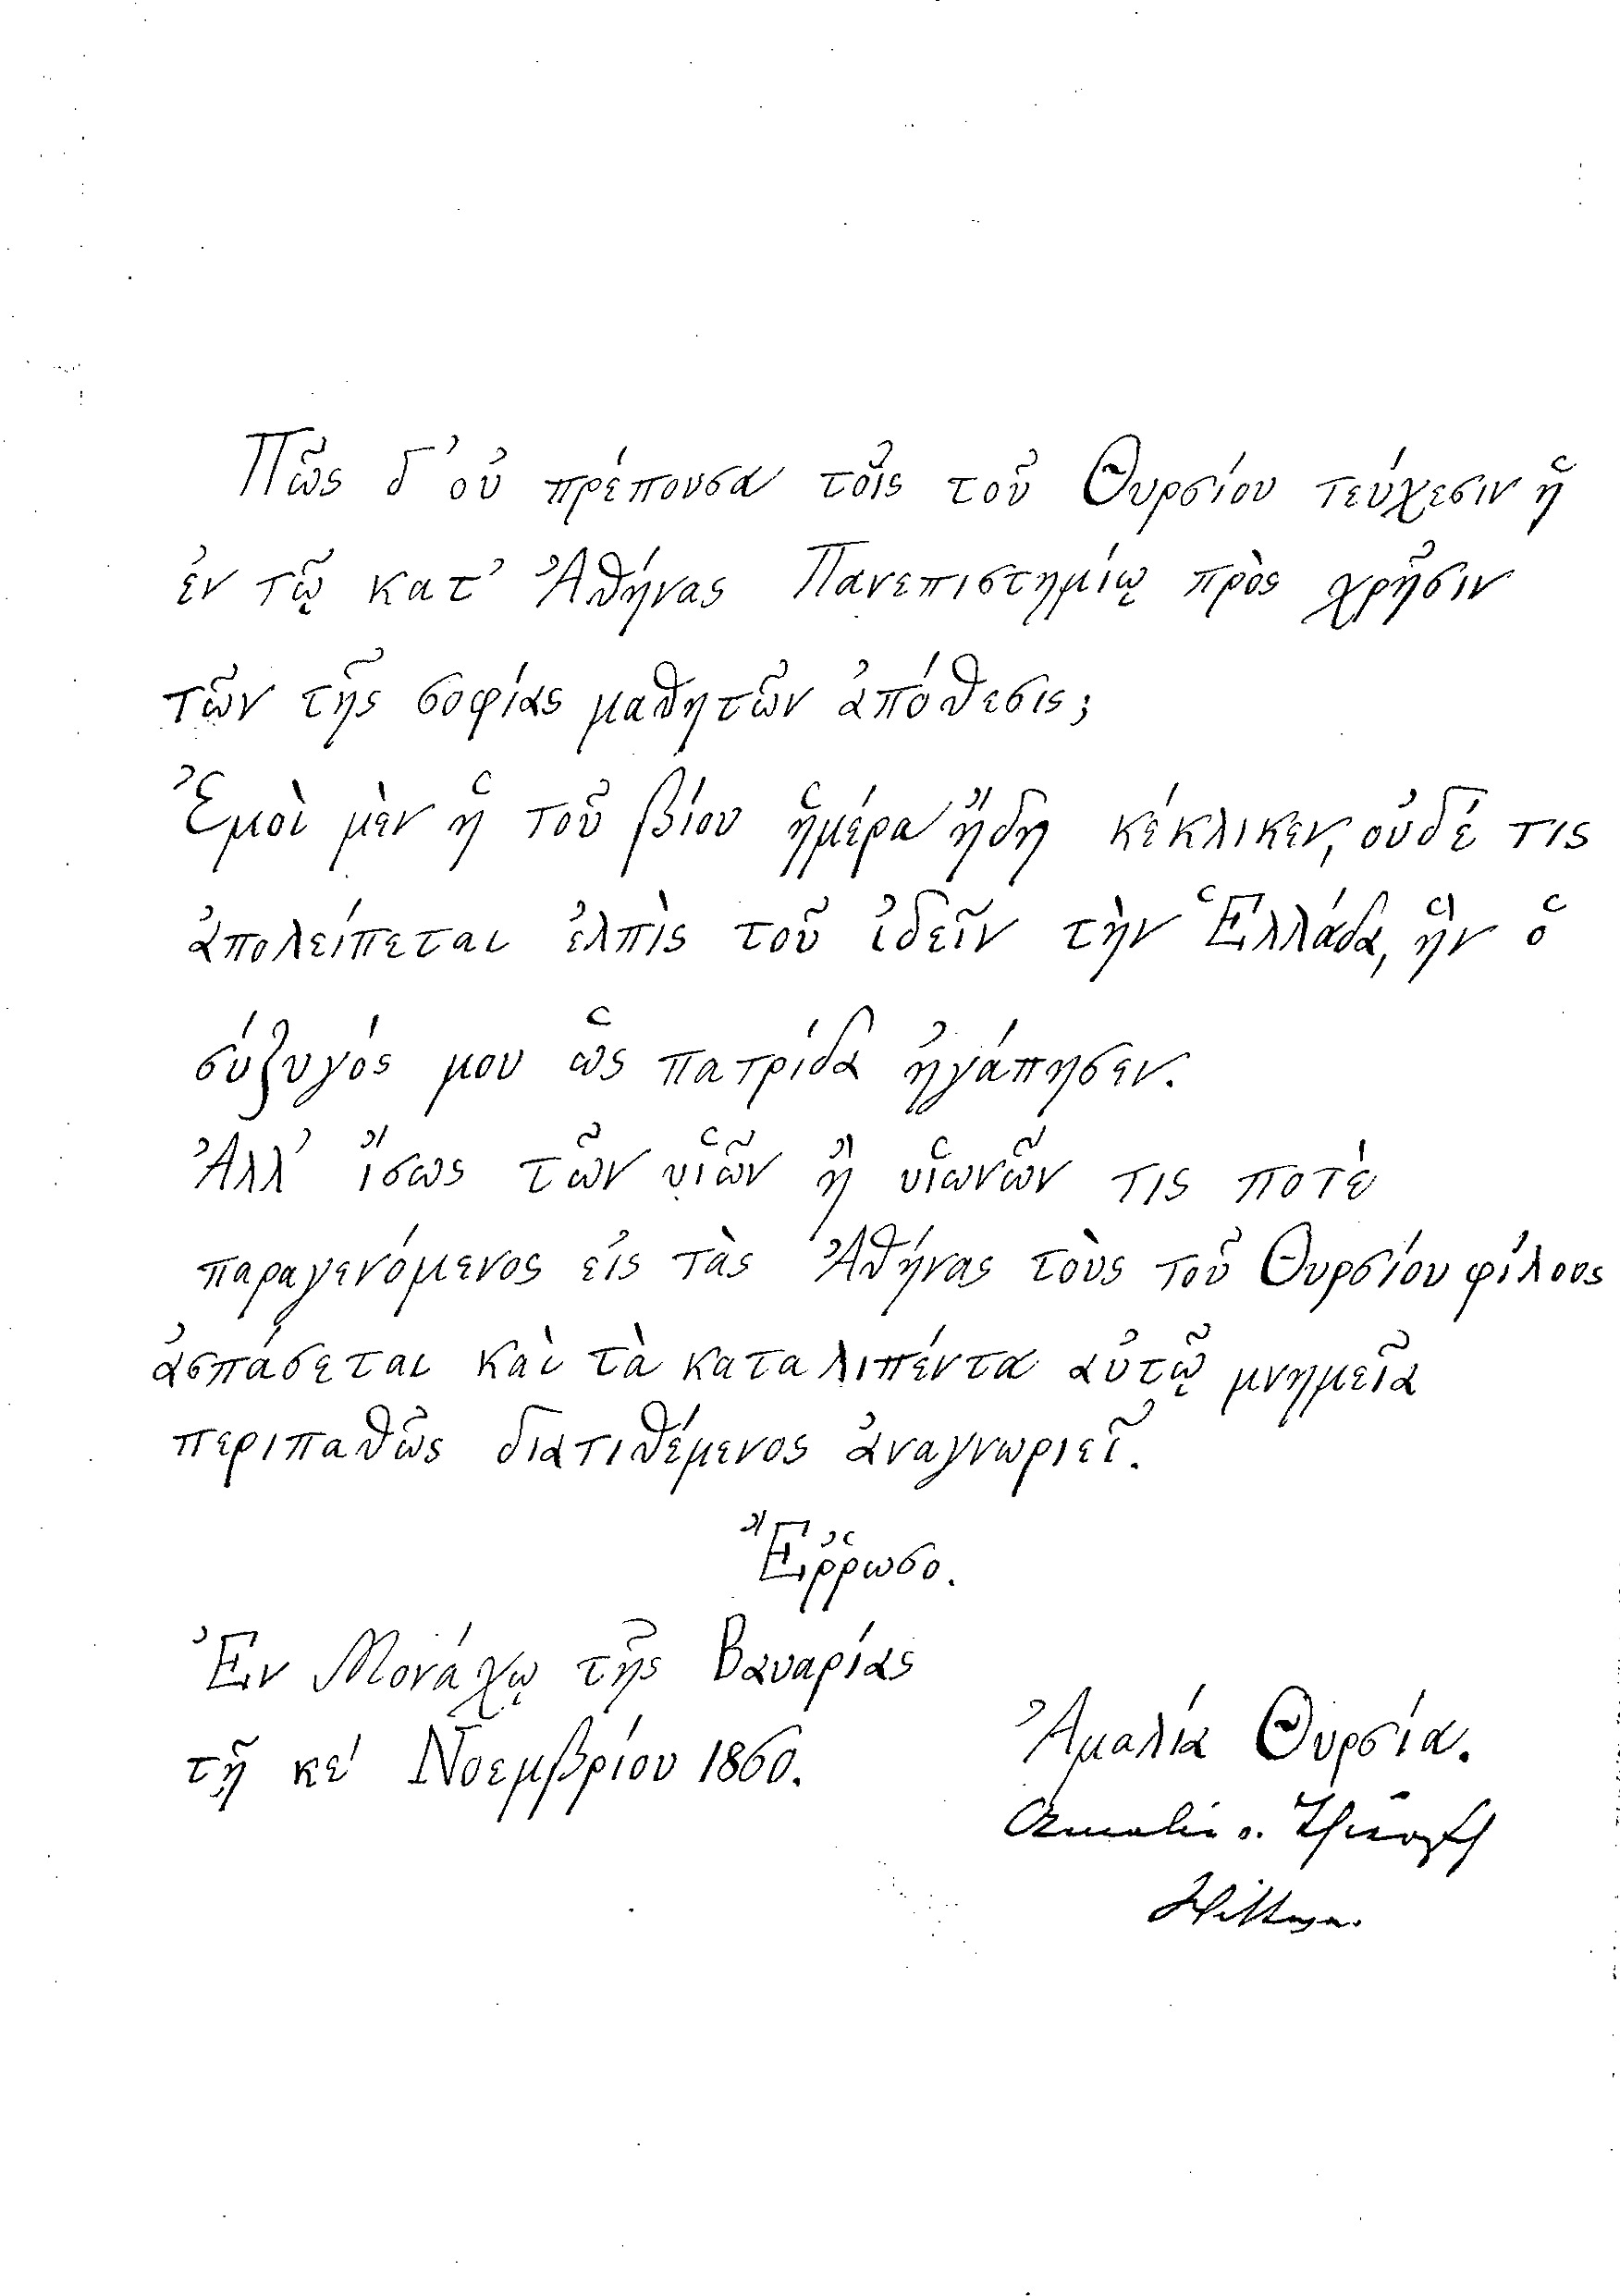 Πῶς δ᾽ οὐ πρέπουσα τοῖς τοῦ Θυρσίου τεύχεσιν ἡ
ἐν τῷ κατ᾽ Ἀθήνας Πανεπιστημίῳ πρὸς χρῆσιν
τῶν τῆς σοφίας μαθητῶν ἀπόθεσις;
Ἐμοὶ μὲν ἡ τοῦ βίου ἡμέρα ἤδη κέκλικεν, οὐδέ τις
ἀπολείπεται ἐλπὶς τοῦ ἰδεῖν τὴν Ἑλλάδα, ἣν ὁ
σύζυγός μου ὡς πατρίδα ἠγάπησεν.
Ἀλλ᾽ ἴσως τῶν υἱῶν ἢ υἱωνῶν τις ποτὲ
παραγενόμενος εἰς τὰς Ἀθήνας τοὺς τοῦ Θυρσίου φίλους
ἀσπάσεται καὶ τὰ καταλιπέντα αὐτῷ μνημεῖα
περιπαθῶς διατιθέμενος ἀναγνωριεῖ.
Ἔῤῥωσο.
Ἐν Μονάχῳ τῆς Βαυαρίας
τῇ κε´ Νοεμβρίου 1860.
Ἀμαλία Θυρσία.
Amalie v. Thiersch